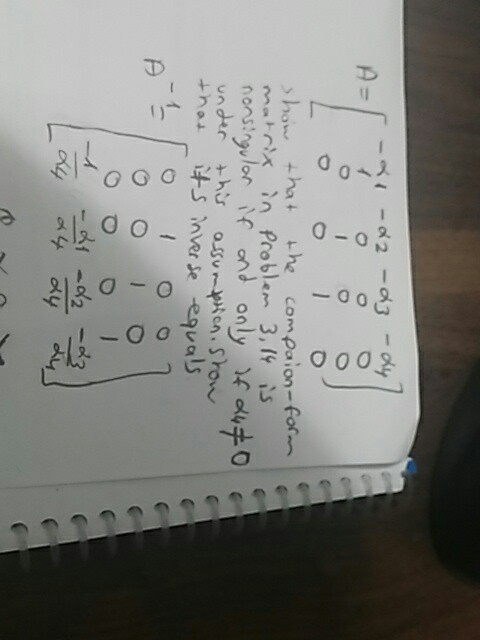 A = [ -α1 -α2 -α3 -α4
1 0 0 0
0 1 0 0
0 0 1 0 ]
show that the compaion-form
matrix in problem 3,14 is
nonsingular if and only if α4 ≠ 0
under this assumption. show
that it's inverse equals
A⁻¹ = [ 0 1 0 0
0 0 1 0
0 0 0 1
-1/α4 -α1/α4 -α2/α4 -α3/α4 ]